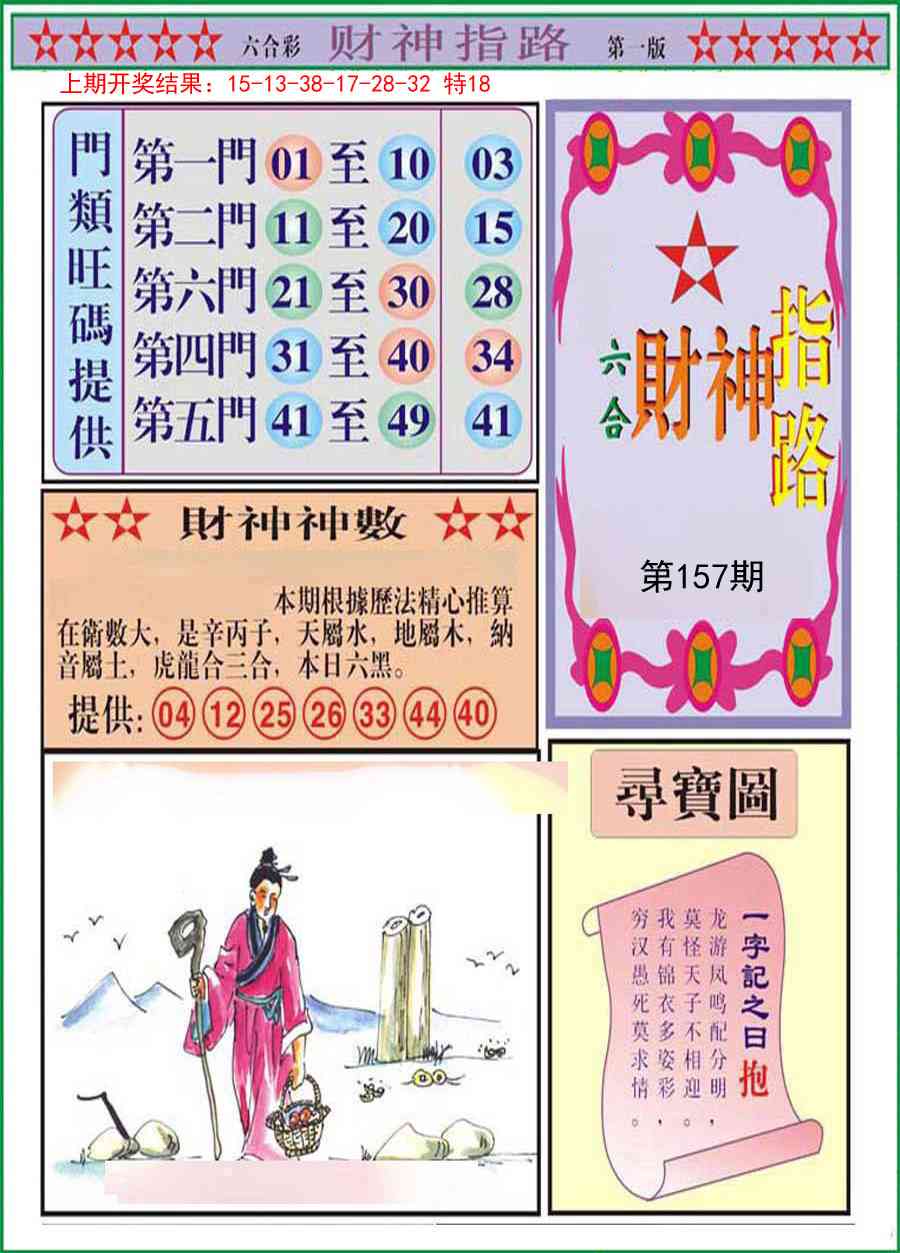 六合彩 财神指路 第一版
上期开奖结果：15-13-38-17-28-32 特18
門類旺碼提供
第一門 01 至 10 03
第二門 11 至 20 15
第六門 21 至 30 28
第四門 31 至 40 34
第五門 41 至 49 41
六合
財神
指路
第157期
財神神數
本期根據歷法精心推算
在衛數大，是辛丙子，天屬水，地屬木，納
音屬土，虎龍合三合，本日六黑。
提供: 04 12 25 26 33 44 40
尋寶圖
一字記之日 抱
龙游凤鸣配分明，
莫怪天子不相迎。
我有锦衣多姿彩，
穷汉愚死莫求情。